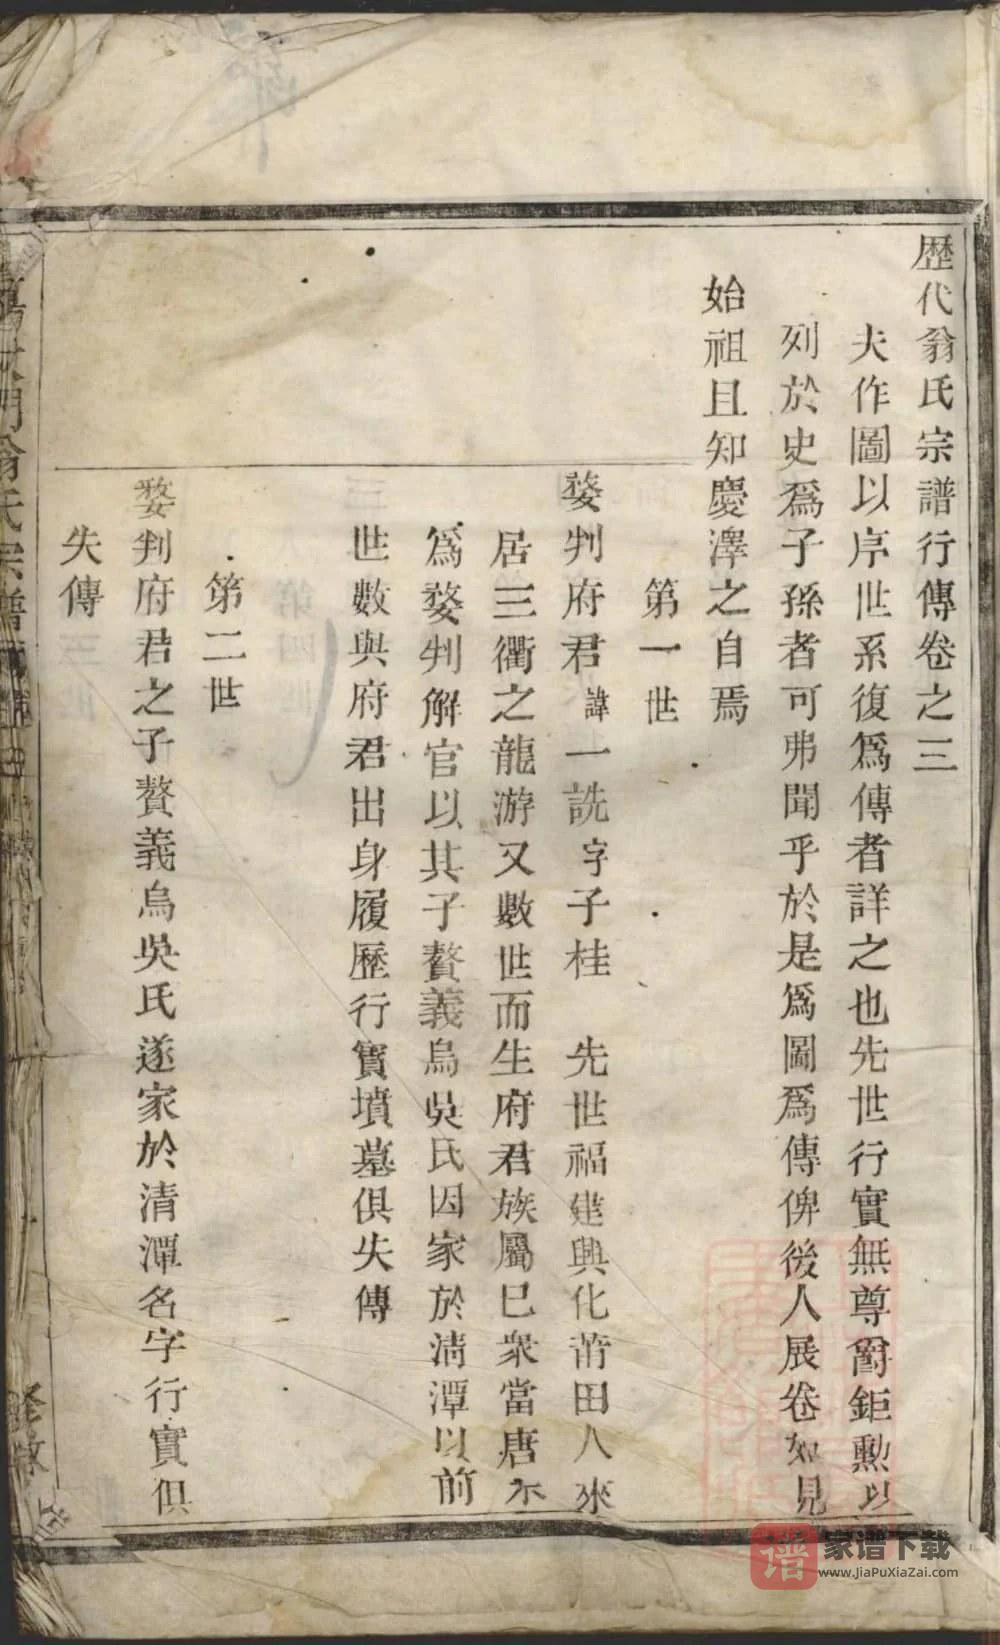 歷代翁氏宗譜行傳卷之三
夫作圖以序世系復爲傳者詳之也先世行實無尊爵鉅勲以
列於史爲子孫者可弗聞乎於是爲圖爲傳俾後人展卷如見
始祖且知慶澤之自焉
第一世
婺判府君諱一詵字子桂 先世福建興化莆田人來
居三衢之龍游又數世而生府君族屬巳衆當唐末
爲婺判解官以其子贅義烏吳氏因家於清潭以前
世數與府君出身履歷行實墳墓俱失傳
第二世
婺判府君之子贅義烏吳氏遂家於清潭名字行實俱
失傳
翁氏宗譜
谱
家谱下载
www.JiaPuXiaZai.com